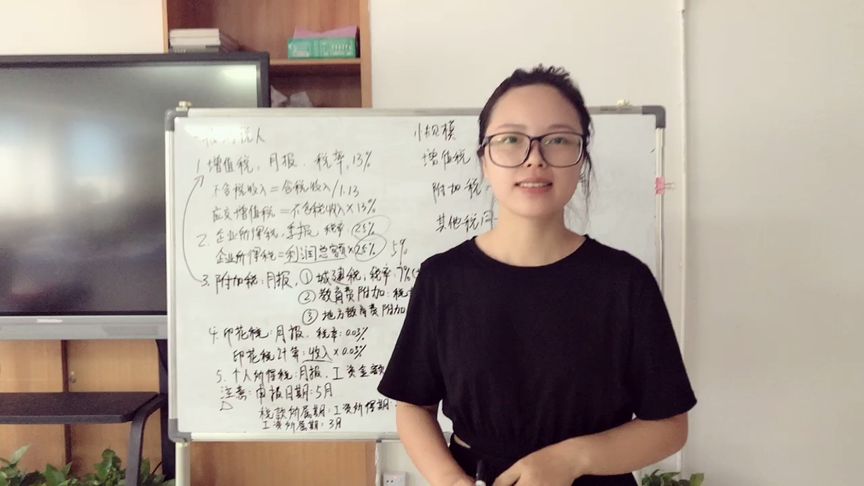 税人
1. 增值税, 月报. 税率, 13%
不含税收入 = 含税收入/1.13
应交增值税 = 不含税收入×13%
2. 企业所得税, 季报 税率: 25%
企业所得税 = 利润总额×25% 5%
3. 附加税: 月报, ① 城建税, 税率: 7%
② 教育费附加: 税
③ 地方教育费附加
4. 印花税: 月报. 税率: 0.03%
印花税计算: 收入×0.03%
5. 个人所得税: 月报. 工资金额
注意: 申报日期: 5月
税款所属期: 工资所得期
工资所属期: 3月
小规模
增值税
附加税 =
其他税同